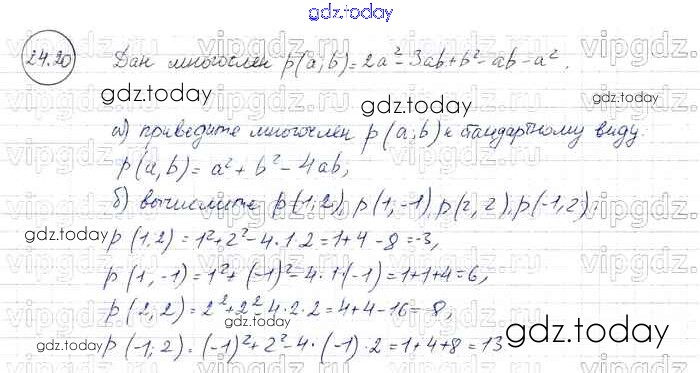 gdz.today
24.20 Дан многочлен p(a;b)=2a²-3ab+b²-ab-a².
gdz.today
а) приведите многочлен p(a;b) к стандартному виду.
p(a,b)=a²+b²-4ab,
б) вычислите p(1;2), p(1;-1), p(2,2), p(-1,2).
gdz.today
p(1,2)=1²+2²-4·1·2=1+4-8=-3,
p(1,-1)=1²+(-1)²-4·1·(-1)=1+1+4=6,
p(2,2)=2²+2²-4·2·2=4+4-16=-8,
gdz.today
gdz.today
p(-1;2)=(-1)²+2²-4·(-1)·2=1+4+8=13
gdz.today